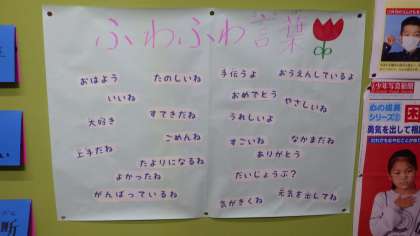 ふわふわ言葉
おはよう
たのしいね
いいね
大好き
すてきだね
ごめんね
上手だね
たよりになるね
よかったね
がんばっているね
手伝うよ
おうえんしているよ
おめでとう
やさしいね
うれしいよ
すごいね
なかまだね
ありがとう
だいじょうぶ?
気がきくね
元気を出してね
少年写真新聞
心の成長
シリーズ②
勇気を出して相